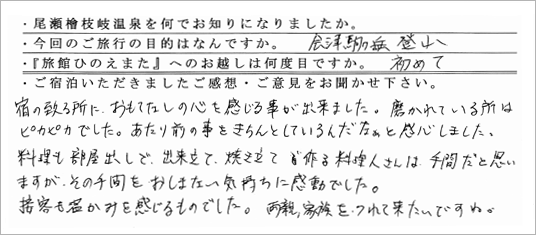 ・尾瀬檜枝岐温泉を何でお知りになりましたか。
・今回のご旅行の目的はなんですか。 会津駒ヶ岳 登山へ
・『旅館ひのえまた』へのお越しは何度目ですか。 初めて
・ご宿泊いただきましたご感想・ご意見をお聞かせ下さい。
宿の至る所に、おもてなしの心を感じる事が出来ました。磨かれている所は
ピカピカでした。あたり前の事をきちんとしているんだなぁと感心しました、
料理も部屋出しで、出来立て、焼き立て 作る料理人さんは、手間だと思い
ますが、その手間をおしまない気持ちに感動でした。
接客も温かみを感じるものでした。両親、家族を、つれて来たいですね。